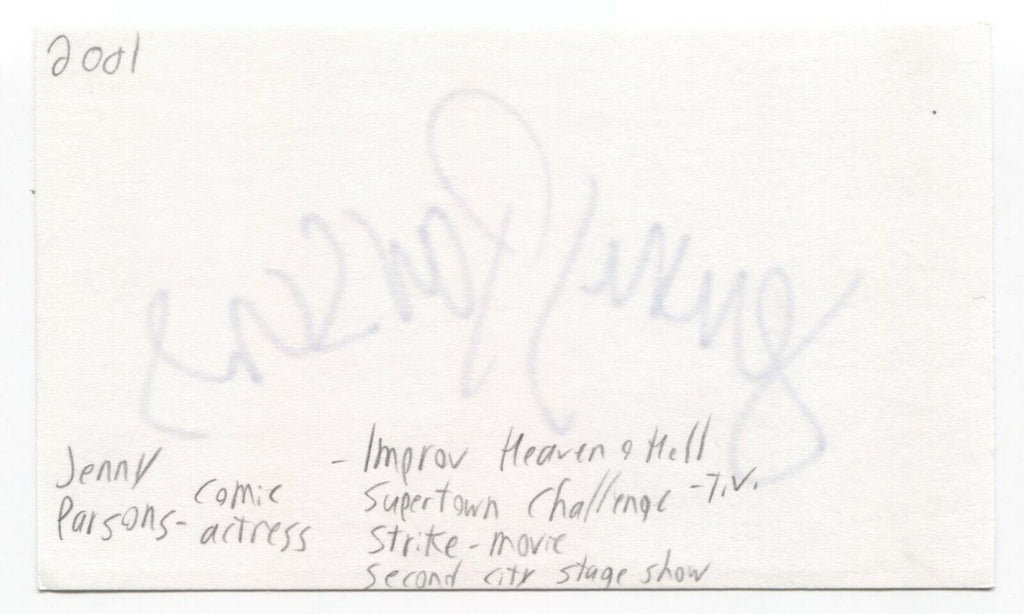 2001
Jenny
Parsons- comic
actress
- Improv Heaven & Hell
Supertown Challenge - T.V.
Strike - movie
Second city stage show